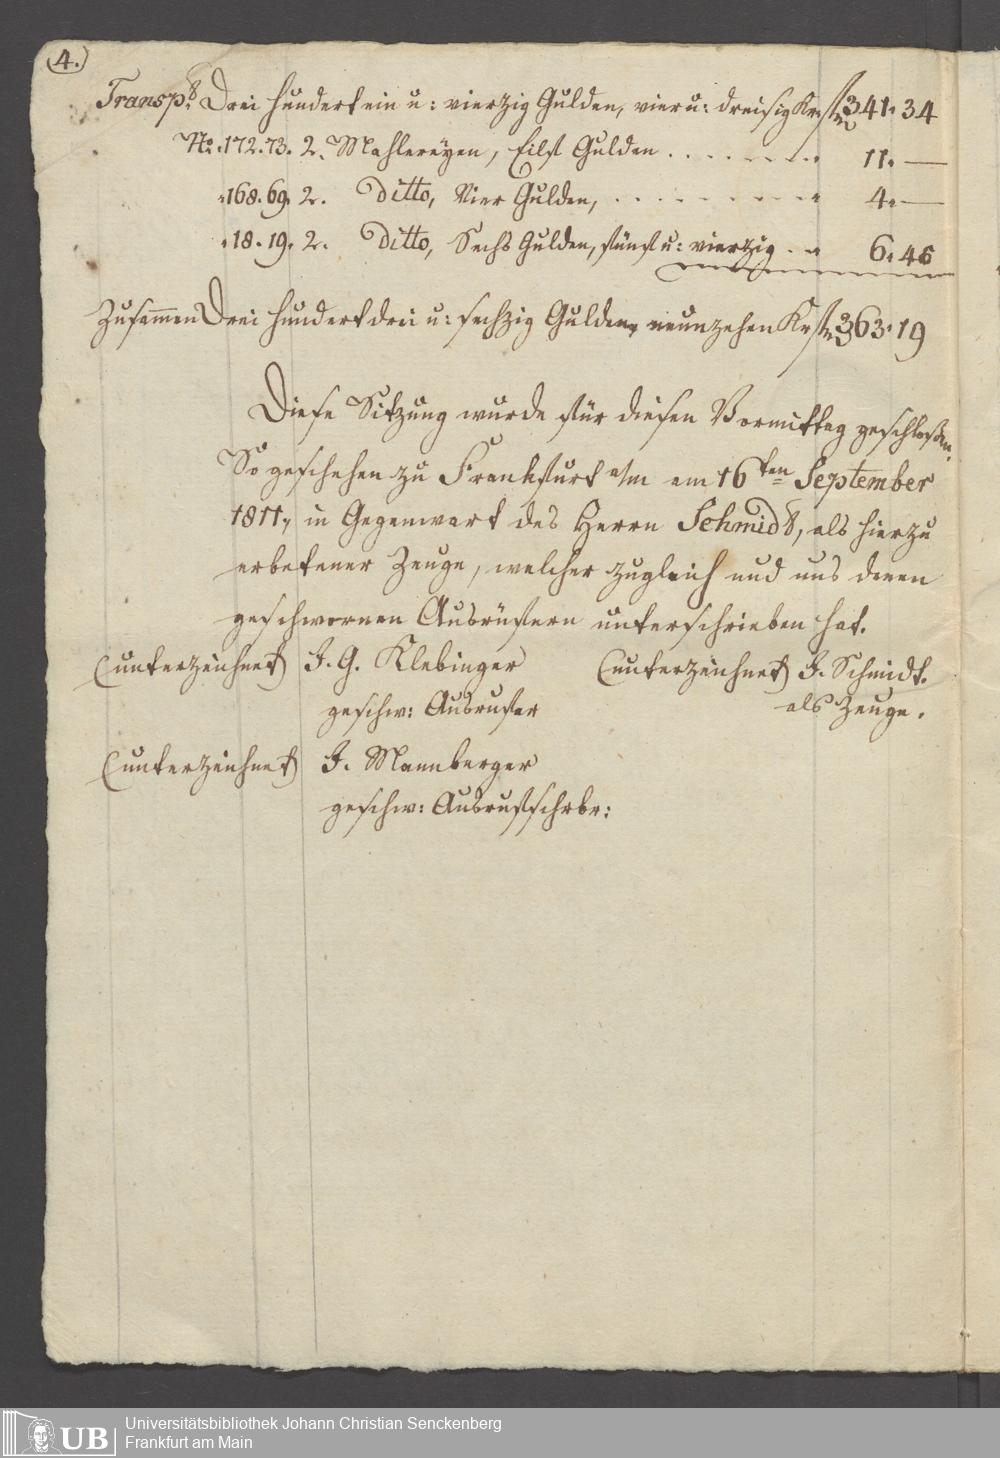 4.
Transpt. Drei hundert ein u: vierzig Gulden, vier u: dreisig Kr. f 341. 34
No. 172. 73. 2. Mahlereyen, Eilf Gulden . . . . . . . " 11. —
" 168. 69. 2. Ditto, Vier Gulden, . . . . . . . . . " 4. —
" 18. 19. 2. Ditto, Sechs Gulden, fünf u: vierzig . . " 6. 46
Zusammen Drei hundert drei u: sechzig Gulden, neunzehen Kr f 363. 19
Diese Sitzung wurde für diesen Vormittag geschloßen.
So geschehen zu Frankfurt a/m am 16ten September
1811, in Gegenwart des Herrn Schmidt, als hierzu
erbetener Zeuge, welcher zugleich mit uns denen
geschwornen Ausrüfern unterschrieben hat.
(unterzeichnet) J. G. Klebinger (unterzeichnet) J. Schmidt.
geschw: Ausrufer als Zeuge.
(unterzeichnet) J. Mannberger
geschw: Ausrufschrbr:
UB Universitätsbibliothek Johann Christian Senckenberg
Frankfurt am Main